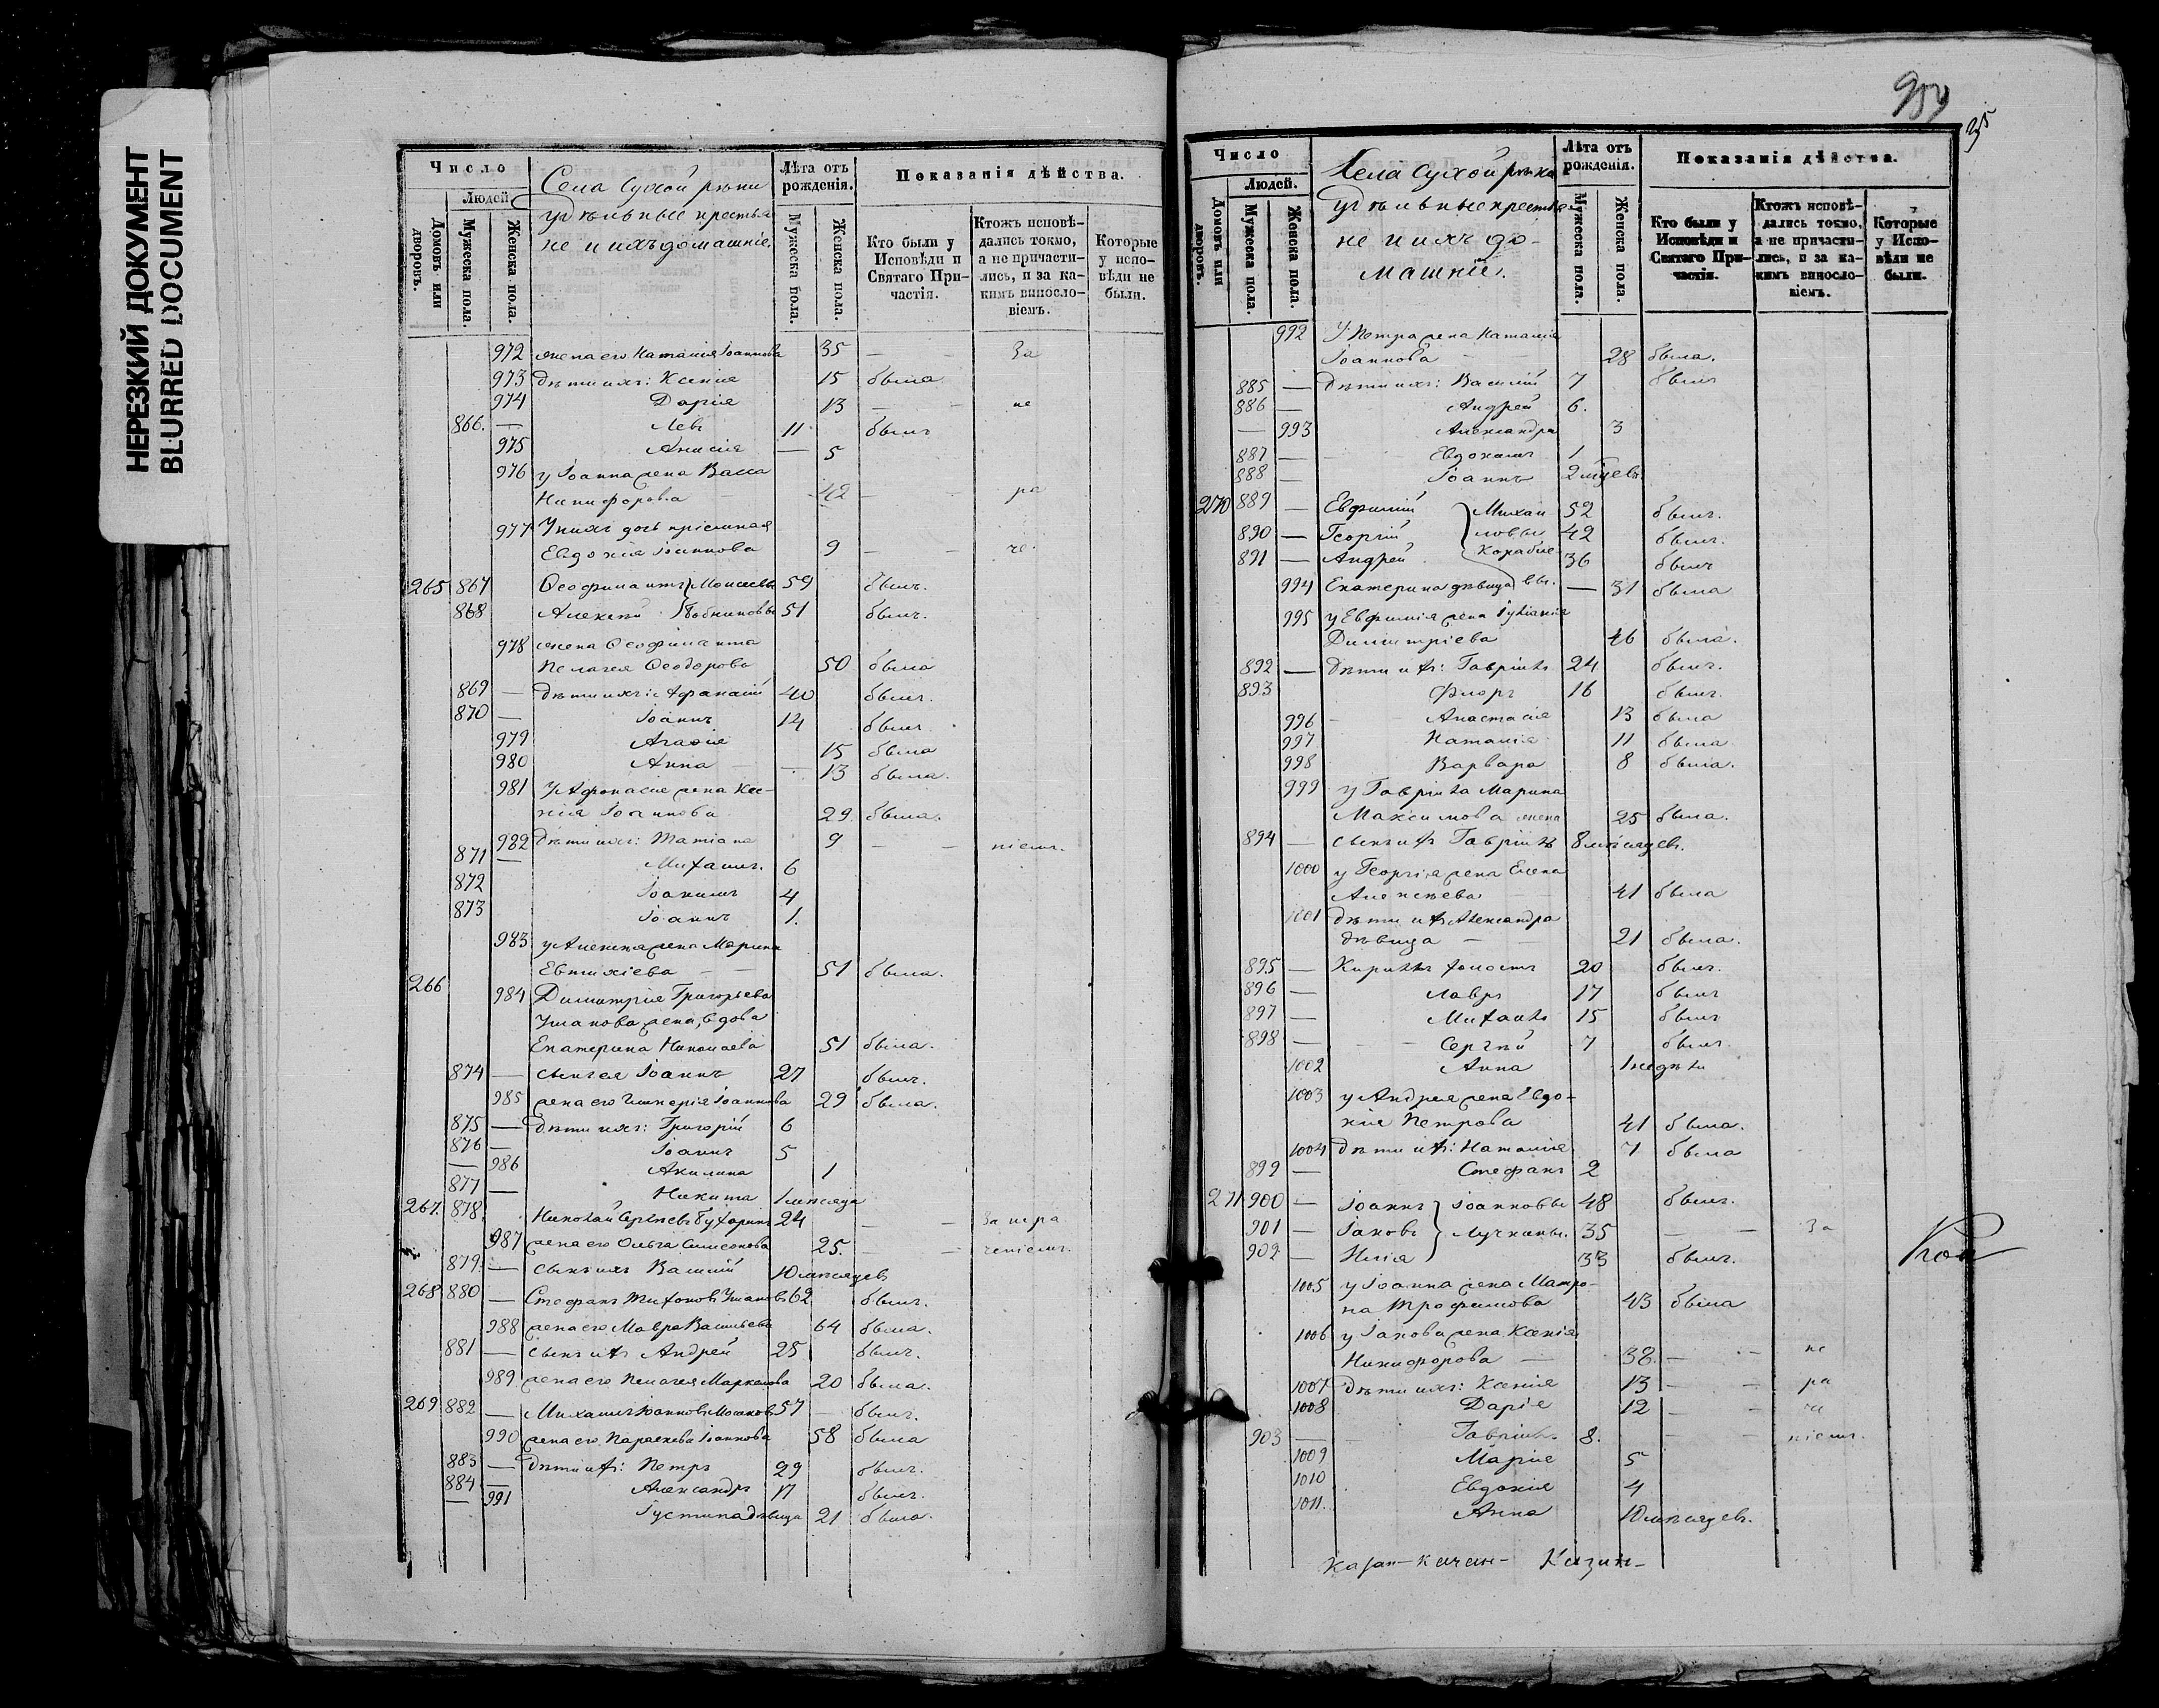 НЕРЕЗКИЙ ДОКУМЕНТ
BLURRED DOCUMENT
Число
Людей.
Домовъ или дворовъ.
Мужеска пола.
Женска пола.
Села Сухой рѣки
удѣльные крестья
не и ихъ домашніе.
Лѣта отъ рожденія.
Мужеска пола.
Женска пола.
Показанія дѣйства.
Кто были у Исповѣди и Святаго Причастія.
Ктожъ исповѣдались токмо, а не причастились, и за какимъ винословіемъ.
Которые у исповѣди не были.
972 жена его Наталія Іоаннова 35 — За
973 дѣти ихъ: Ксенія 15 была
974 Дарія 13 — — не
866. — Левъ 11 былъ
975 Анисія — 5
976 у Іоанна жена Васса
Никифорова 42 — — ра
977 У нихъ дочь пріемная
Евдокія Іоаннова 9 — — че
265 867 Ѳеофилактъ Моисеевы 59 былъ.
868 Алексѣй 51 былъ.
978 жена Ѳеофилакта
Пелагея Ѳеодорова 50 была
869 — дѣти ихъ: Афанасій 40 былъ.
870 — Іоаннъ 14 былъ.
979 Агафія 15 была
980 Анна — — 13 была.
981 У Афонасія жена Ксе-
нія Іоаннова 29 была.
982 дѣти ихъ: Татіана 9 — — ніемъ.
871 — Михаилъ. 6
872 Іоакимъ 4
873 Іоаннъ 1.
983 у Алексѣя жена Марина
Евтихіева — — 51 была.
266 984 Димитрія Григорьева
Ушакова жена, вдова
Екатерина Николаева 51 была.
874 — сынъ ея Іоаннъ 27 былъ.
985 жена его Гликерія Іоаннова 29 была.
875 — дѣти ихъ: Григорій 6
876 — Іоаннъ 5
— 986 Акилина 1
877 — Никита 1 мѣсяца
267. 878. Николай Сергѣевъ Бухаринъ 24 — — За нера
987 жена его Ольга Симеонова 25. — — ченіемъ.
879. — сынъ ихъ Василій 10 мѣсяцевъ
268 880 — Стефанъ Тихоновъ Ушаковъ 62 былъ.
988 жена его Мавра Васильева 64 была.
881 — сынъ ихъ Андрей 25 былъ.
989 жена его Пелагея Маркелова 20 была.
269 882 — Михаилъ Іоанновъ 57 — былъ.
990 жена его Параскева Іоаннова 58 была
883 — дѣти ихъ: Петръ 29 былъ.
884 — Александръ 17 былъ.
— 991 Іустина дѣвица 21 была.
959
25
Число
Людей.
Домовъ или дворовъ.
Мужеска пола.
Женска пола.
Села Сухой рѣки
удѣльные крестья
не и ихъ до-
машніе.
Лѣта отъ рожденія.
Мужеска пола.
Женска пола.
Показанія дѣйства.
Кто были у Исповѣди и Святаго Причастія.
Ктожъ исповѣдались токмо, а не причастились, и за какимъ винословіемъ.
Которые у Исповѣди не были.
992 У Петра жена Наталія
Іоаннова 28 была.
885 — дѣти ихъ: Василій 7 былъ
886 — Андрей 6.
— 993 Александра 3
887 — Евдокимъ 1
888 — Іоаннъ 2 мѣсяцевъ.
270 889 — Евфимій Михаи 52 былъ.
890 — Георгій ловы 42 былъ.
891 — Андрей 36 былъ
994 Екатерина дѣвица — 31 была
995 у Евфимія жена Іуліанія
Димитріева 46 была.
892 — дѣти ихъ: Гавріилъ 24 былъ.
893 Флоръ 16 былъ.
996 Анастасія 13 была
997 Наталія 11 была
998 Варвара 8 была.
999 у Гавріила Марина
Максимова жена 25 была.
894 — сынъ ихъ Гавріилъ 8 мѣсяцевъ.
1000 у Георгія жена Елена
Алексѣева 41 была
1001 дѣти ихъ Александра
дѣвица — 21 была.
895 — Кириллъ холостъ 20 былъ.
896 — Лавръ 17 былъ
897 — Михаилъ 15 былъ
898 — Сергѣй 7 былъ
1002 Анна 1 недѣли
1003 у Андрея жена Евдо-
кія Петрова 41 была.
1004 дѣти ихъ: Наталія 7 была
899 — Стефанъ 2
271 900 — Іоаннъ Іоанновы 48 былъ.
901 — Іаковъ Лучкины. 35 — — За
902 — Илія 33 былъ.
1005 у Іоанна жена Матро-
на Трофимова 43 была
1006 у Іакова жена Ксенія
Никифорова — 38. — — не
1007 дѣти ихъ: Ксенія 13 — — ра
1008 Дарія 12 — — че
903 — Гавріилъ. 8. — — ніемъ.
1009 Марія 5
1010 Евдокія 4
1011. Анна 10 мѣсяцевъ.